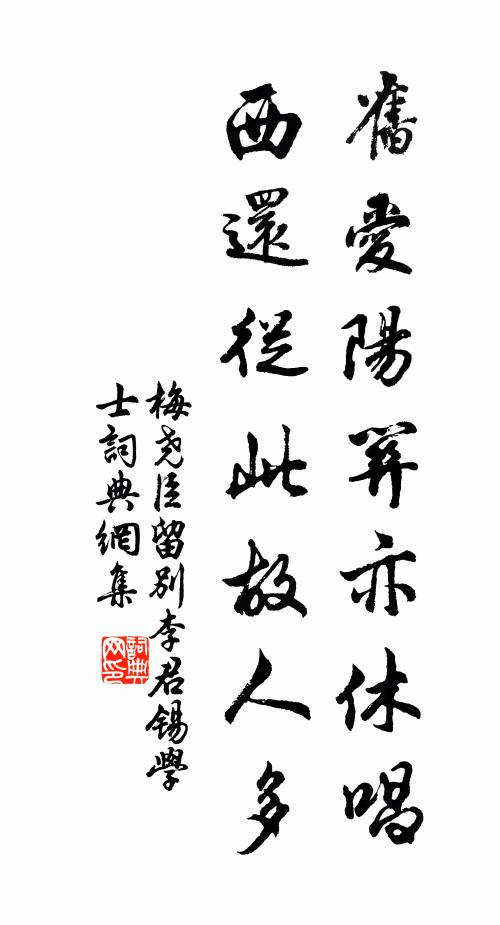 舊愛陽關亦休唱
西還從此故人多
梅堯臣留別李君錫學
士詞典網集
詞典
网印